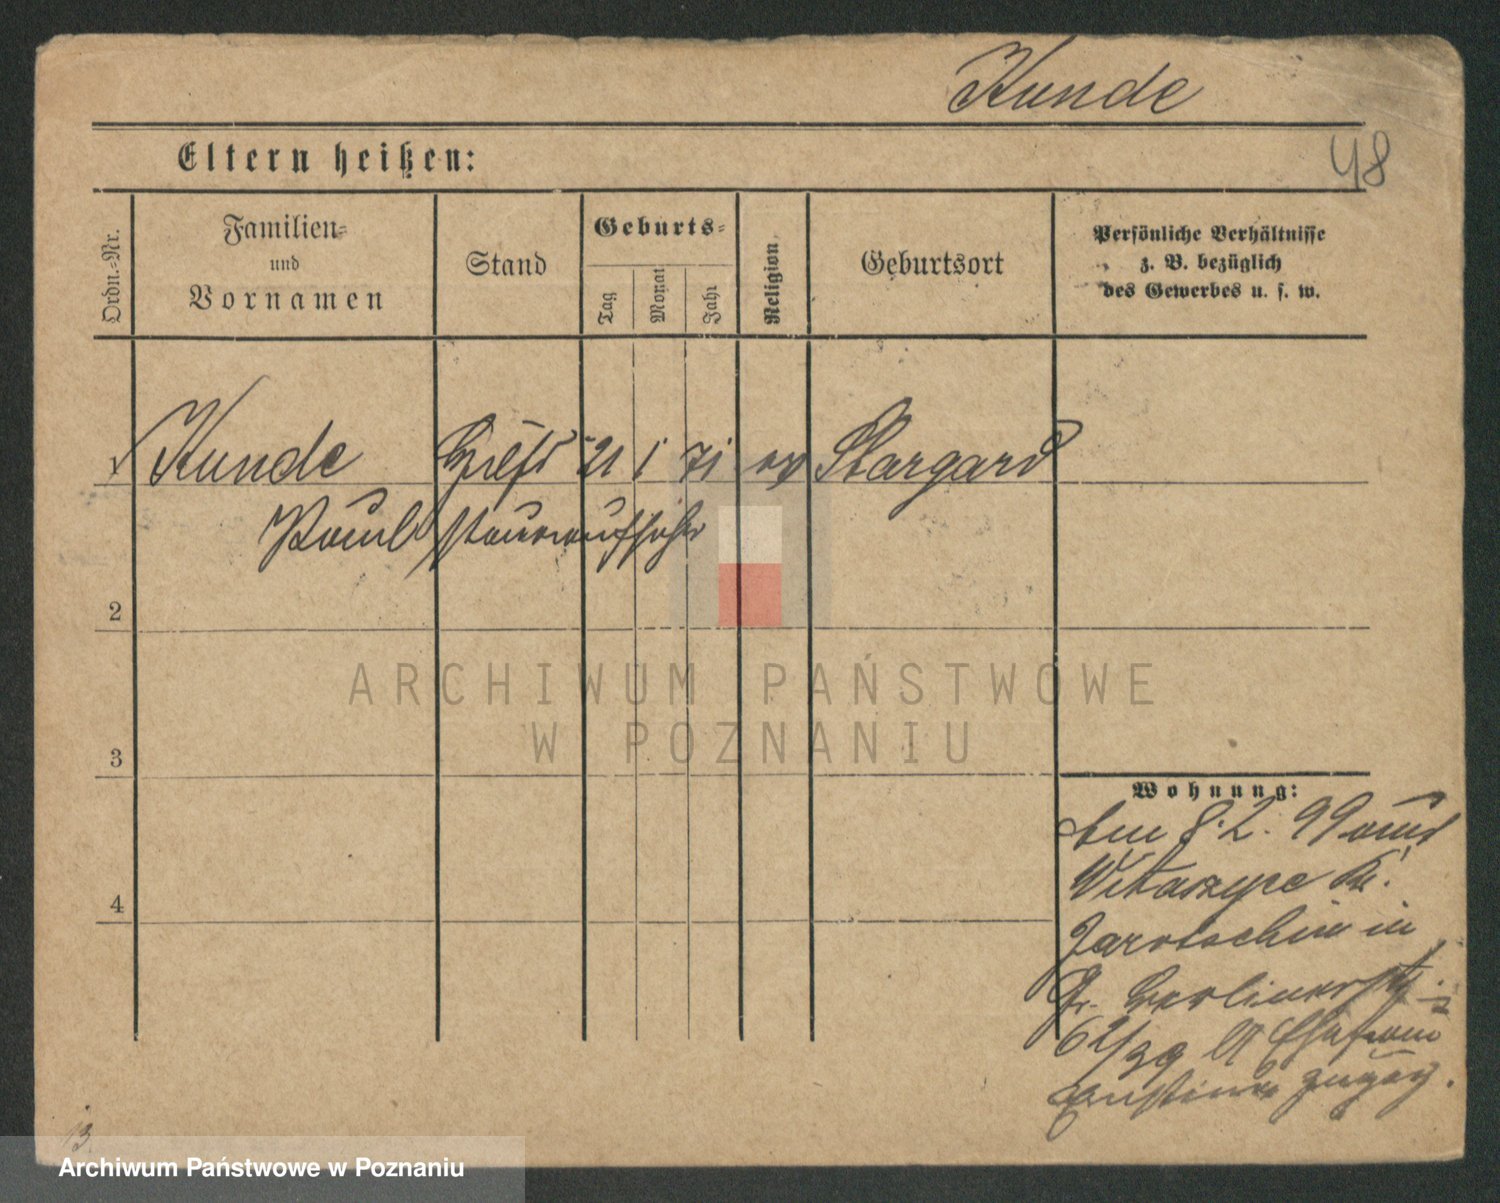 Kunde
48
Eltern heißen:
Ordn.-Nr.
Familien-
und
Vornamen
Stand
Geburts-
Tag
Monat
Jahr
Religion
Geburtsort
Persönliche Verhältnisse
z. B. bezüglich
des Gewerbes u. s. w.
1 Kunde 21 1 71 ev Stargard
Paul Steueraufseher
2
3
4
Wohnung:
den 8.2.99 aus
Witaszyce Kr.
Jarotschin in
Gr. Berlinerstr.
62/39 zugez.
13
ARCHIWUM PAŃSTWOWE
W POZNANIU
Archiwum Państwowe w Poznaniu